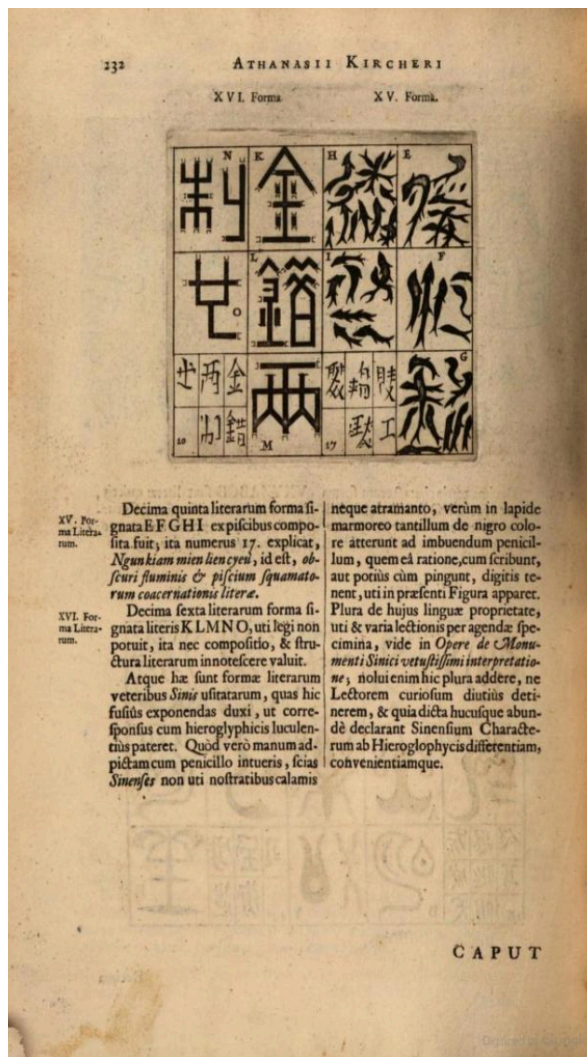 232
ATHANASII KIRCHERI
XVI. Forma
XV. Forma.
N
K
H
E
制
金
L
I
F
O
錯
M
兩
G
金
兩
錯
17
工
Decima quinta literarum forma si-
gnata E F G H I ex piscibus compo-
sita fuit; ita numerus 17. explicat,
Ngun kiam mien lien cyeu, id est, ob-
scuri fluminis & piscium squamato-
rum coacernationis literæ.
XV. For-
ma Litera-
rum.
Decima sexta literarum forma si-
gnata literis K L M N O, uti legi non
potuit, ita nec compositio, & stru-
ctura literarum innotescere valuit.
XVI. For-
ma Litera-
rum.
Atque hæ sunt formæ literarum
veteribus Sinis usitatarum, quas hic
fusiùs exponendas duxi, ut corre-
sponsus cum hieroglyphicis luculen-
tiùs pateret. Quòd verò manum ad-
pictam cum penicillo intueris, scias
Sinenses non uti nostratibus calamis
neque atramanto, verùm in lapide
marmoreo tantillum de nigro colo-
re atterunt ad imbuendum penicil-
lum, quem eâ ratione, cum scribunt,
aut potiùs cùm pingunt, digitis te-
nent, uti in præsenti Figura apparet.
Plura de hujus linguæ proprietate,
uti & varia lectionis per agendæ spe-
cimina, vide in Opere de Monu-
menti Sinici vetustissimi interpretatio-
ne; nolui enim hic plura addere, ne
Lectorem curiosum diutiùs deti-
nerem, & quia dicta hucusque abun-
dè declarant Sinensium Characte-
rum ab Hieroglophycis differentiam,
convenientiamque.
CAPUT